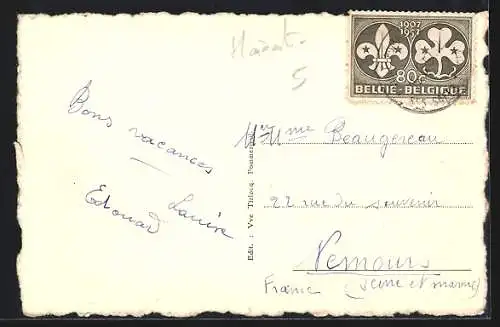 Hainaut
5
1907
1957
80c
BELGIE-BELGIQUE
Bons vacances
Edouard Laure
Edit. : Vve Thilocq, Pommerœul
Mr Mme Beaugereau
22 rue du souvenir
Nemours
France (Seine et marne)